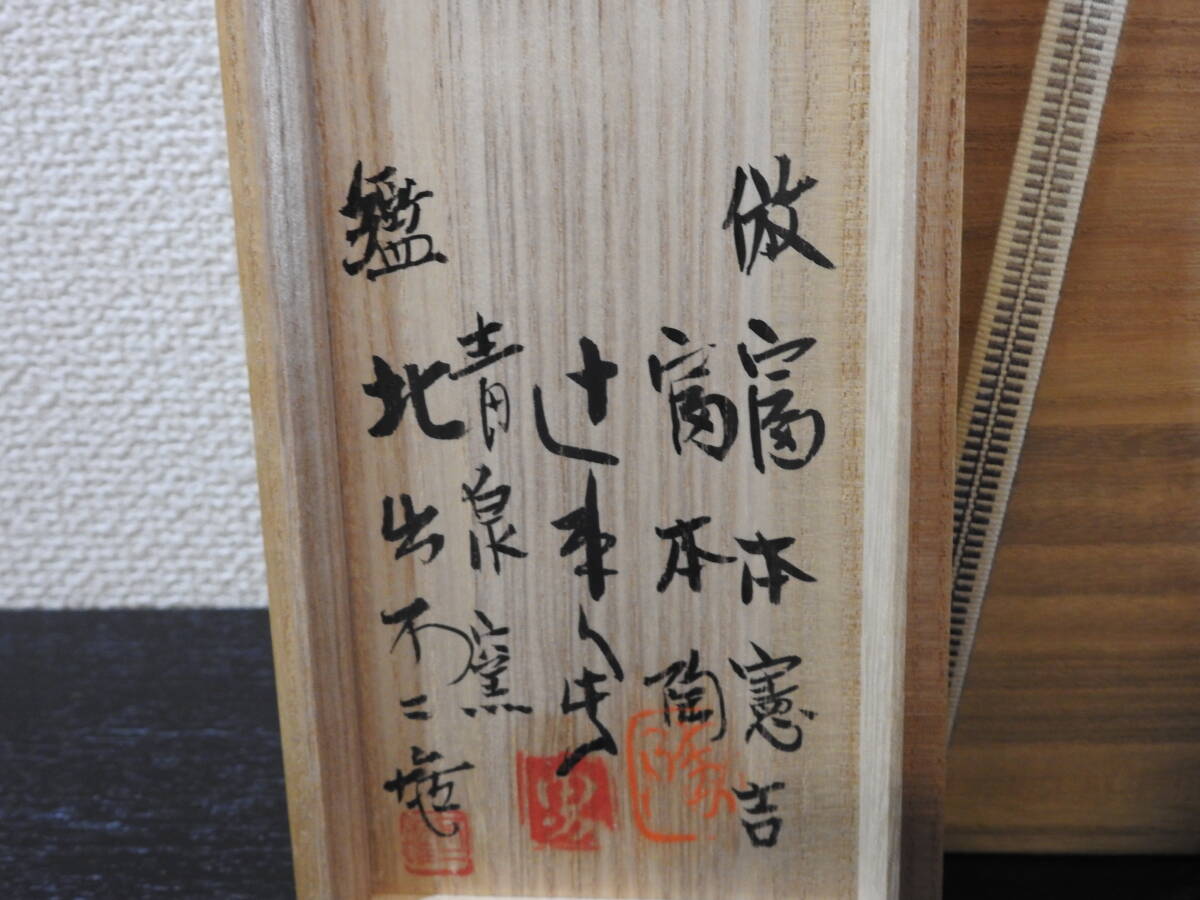 倣 富本憲吉
富本陶
辻本
青泉窯
鑑 北出不二雄